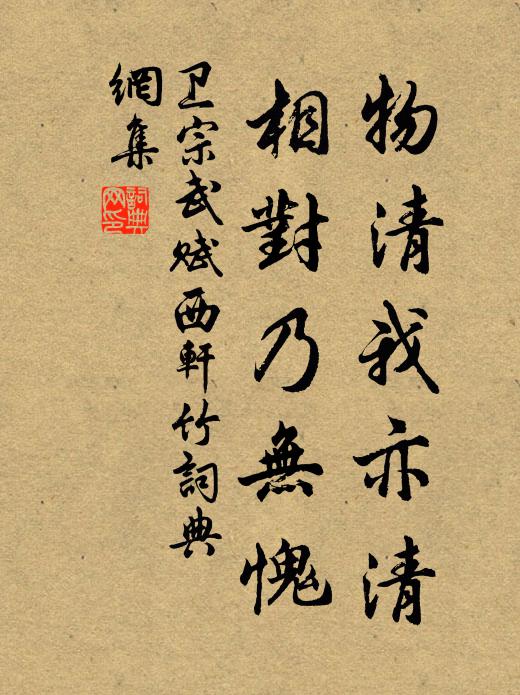 物清我亦清
相對乃無愧
卫宗武赋西軒竹詞典
網集
詞典
网印